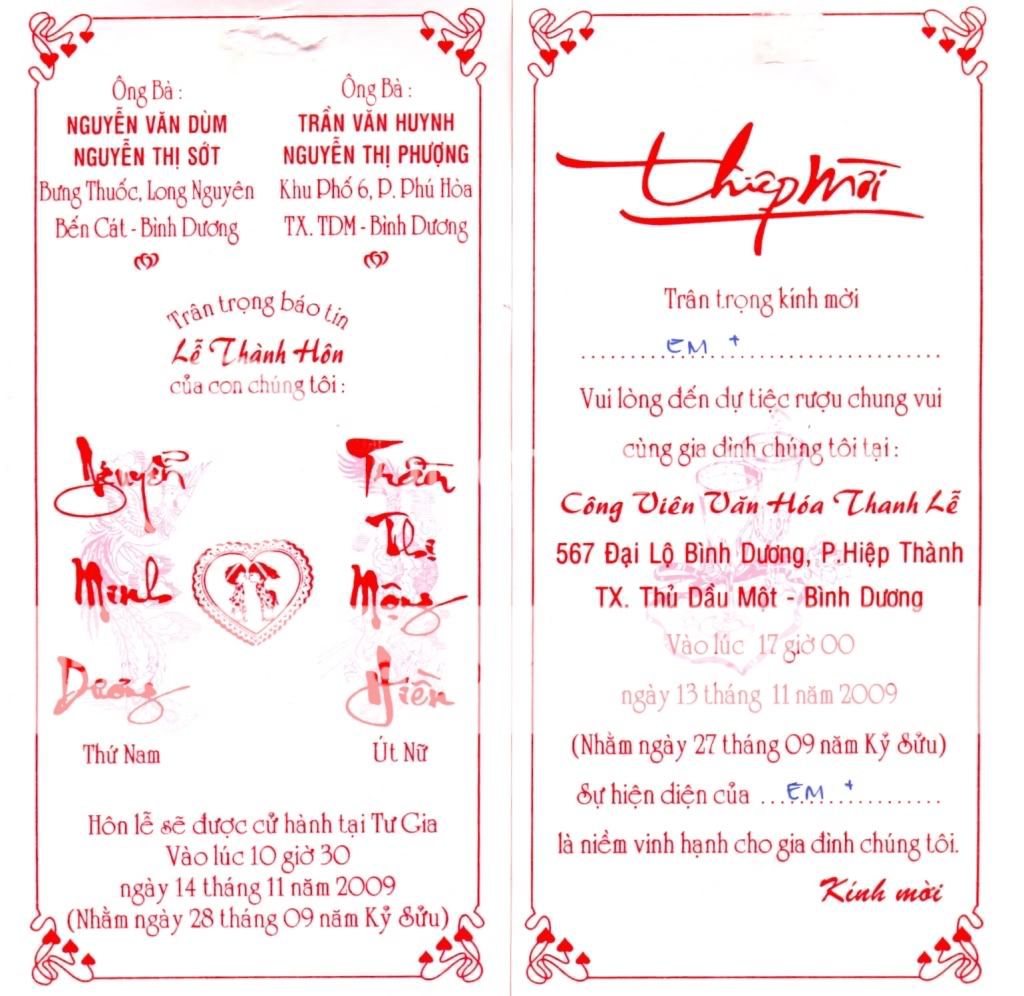 Ông Bà :
NGUYỄN VĂN DÙM
NGUYỄN THỊ SỚT
Bưng Thuốc, Long Nguyên
Bến Cát - Bình Dương
Ông Bà :
TRẦN VĂN HUYNH
NGUYỄN THỊ PHƯỢNG
Khu Phố 6, P. Phú Hòa
TX. TDM - Bình Dương
Trân trọng báo tin
Lễ Thành Hôn
của con chúng tôi :
Nguyễn
Minh
Dương
Thứ Nam
Trần
Thị
Mộng
Hiền
Út Nữ
Hôn lễ sẽ được cử hành tại Tư Gia
Vào lúc 10 giờ 30
ngày 14 tháng 11 năm 2009
(Nhằm ngày 28 tháng 09 năm Kỷ Sửu)
Thiệp mời
Trân trọng kính mời
EM +
Vui lòng đến dự tiệc rượu chung vui
cùng gia đình chúng tôi tại :
Công Viên Văn Hóa Thanh Lễ
567 Đại Lộ Bình Dương, P.Hiệp Thành
TX. Thủ Dầu Một - Bình Dương
Vào lúc 17 giờ 00
ngày 13 tháng 11 năm 2009
(Nhằm ngày 27 tháng 09 năm Kỷ Sửu)
Sự hiện diện của EM +
là niềm vinh hạnh cho gia đình chúng tôi.
Kính mời